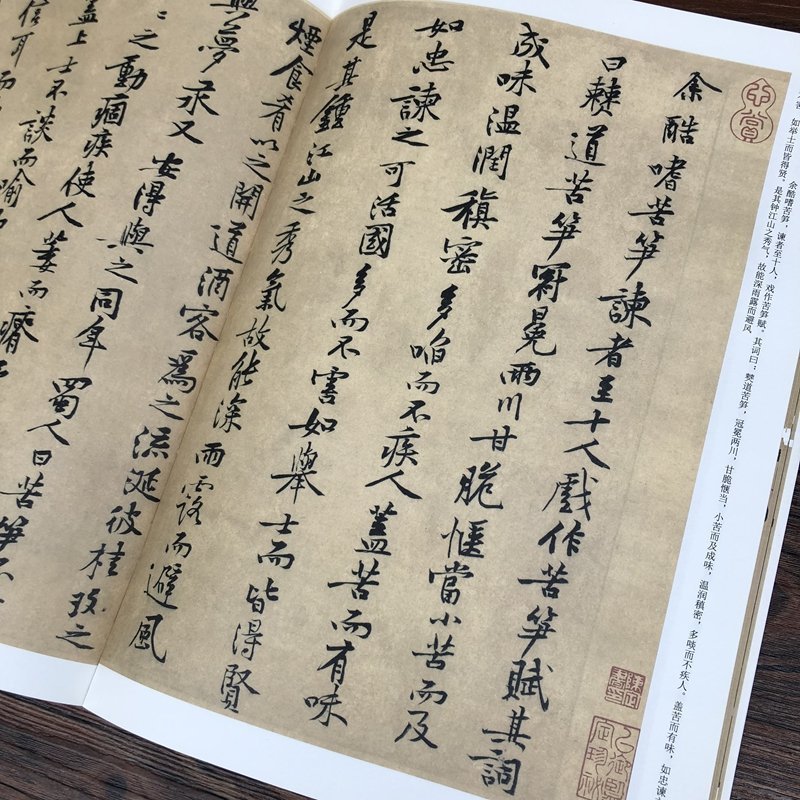 余酷嗜苦笋諫者至十人戲作苦笋賦其詞
曰棘道苦笋冠冕兩川甘脆愜當小苦而及
成味溫潤稹密多啗而不疾人蓋苦而有味
如忠諫之可活國多而不害如舉士而皆得賢
是其鍾江山之秀氣故能深雨露而避風
煙食肴以之開道酒客為之流涎彼桂玫之
與夢汞又安得與之同年蜀人曰苦笋不
之動痼疾使人萎而瘠
蓋上士不談而喻
信耳而
余酷嗜苦笋，谏者至十人，戏作苦笋赋。其词曰：僰道苦笋，冠冕两川，甘脆惬当，小苦而及成味，温润稹密，多啖而不疾人。盖苦而有味，如忠谏
如举士而皆得贤。是其钟江山之秀气；故能深雨露而避风